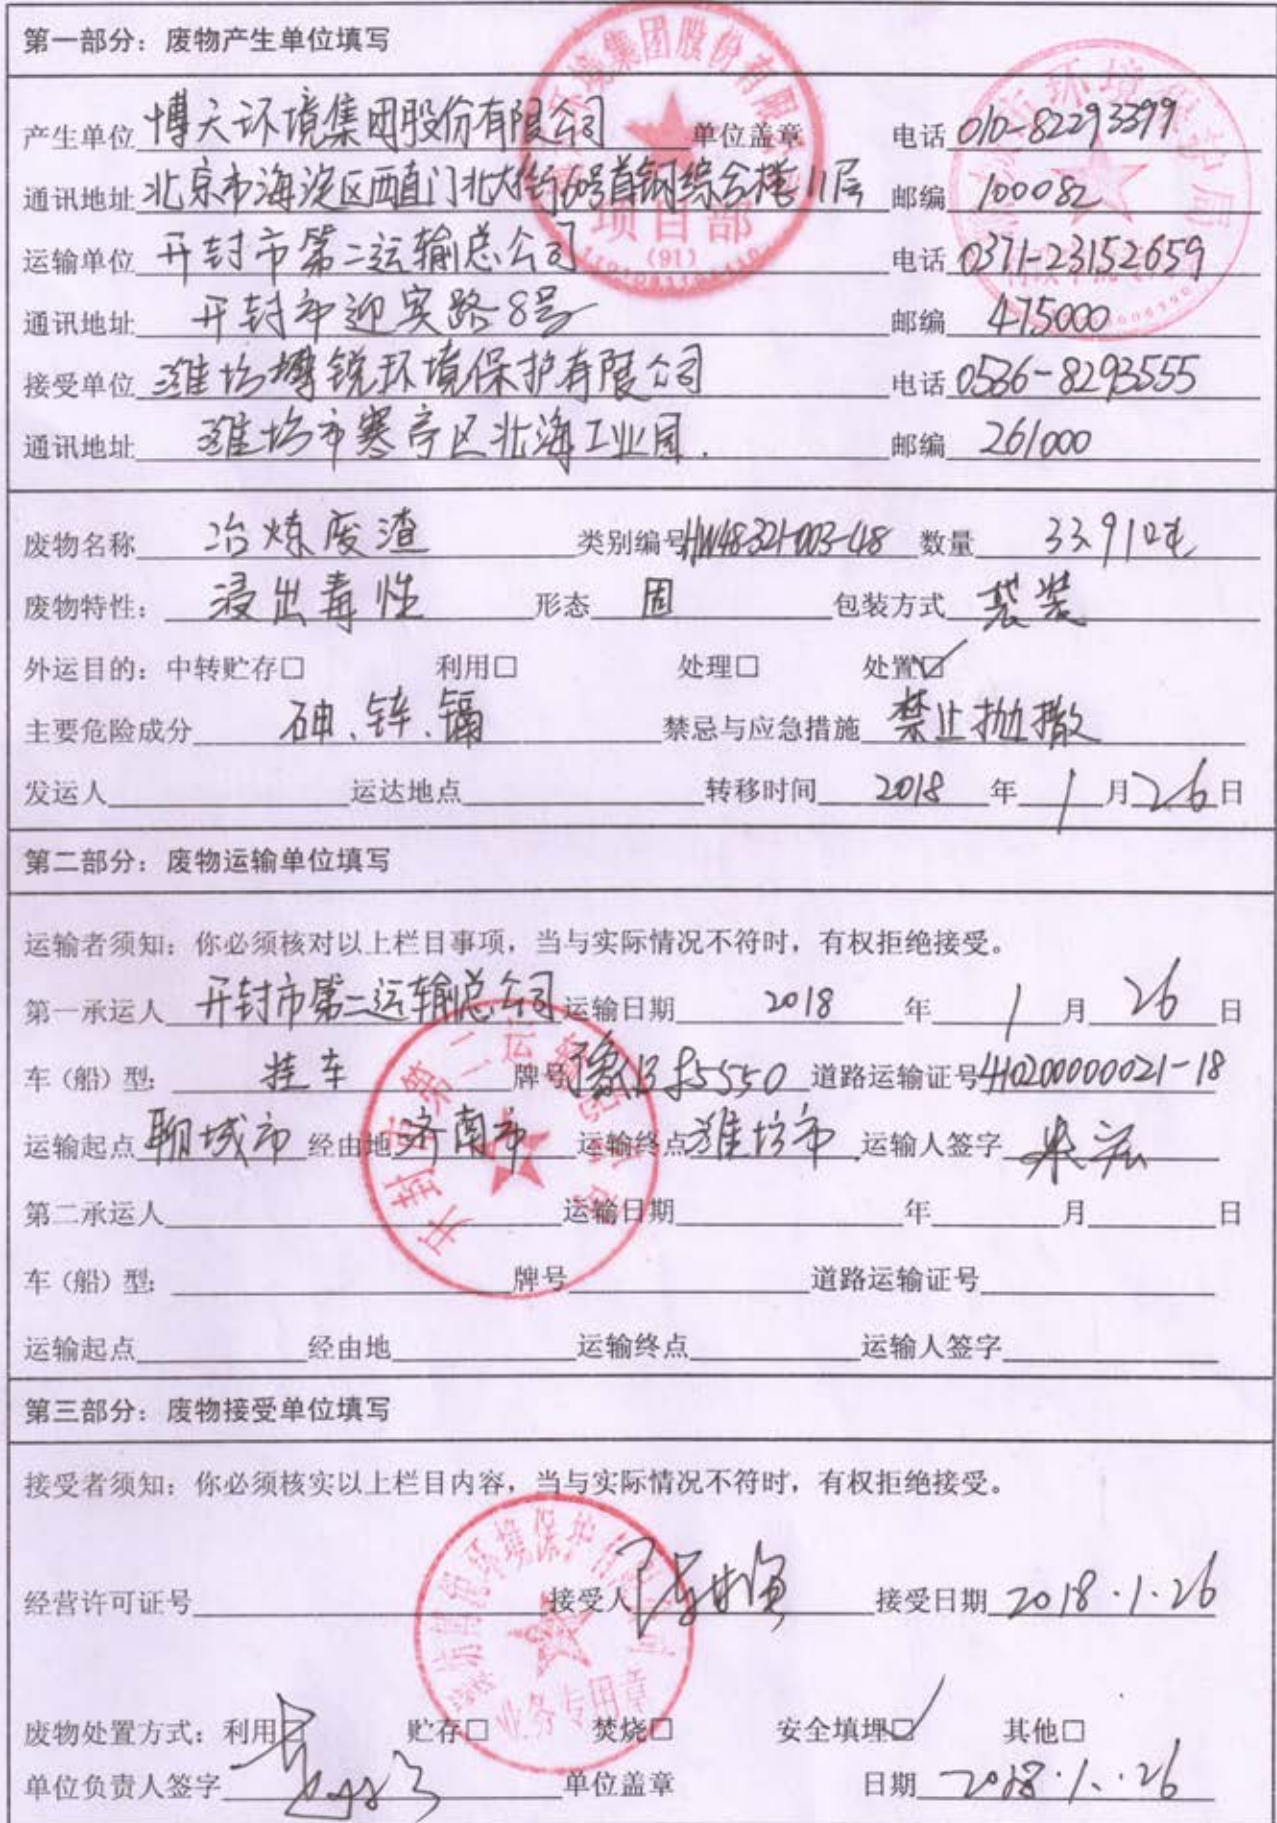 第一部分：废物产生单位填写
产生单位 博天环境集团股份有限公司 单位盖章 电话 010-82293399
通讯地址 北京市海淀区西直门北大街60号首钢综合楼11层 邮编 100082
运输单位 开封市第二运输总公司 电话 0371-23152659
通讯地址 开封市迎宾路8号 邮编 475000
接受单位 潍坊博锐环境保护有限公司 电话 0536-8293555
通讯地址 潍坊市寒亭区北海工业园. 邮编 261000
废物名称 冶炼废渣 类别编号 HW48321-003-48 数量 33.91吨
废物特性： 浸出毒性 形态 固 包装方式 袋装
外运目的：中转贮存□ 利用□ 处理□ 处置☑
主要危险成分 砷、锌、镉 禁忌与应急措施 禁止抛撒
发运人 运达地点 转移时间 2018 年 1 月 26 日
第二部分：废物运输单位填写
运输者须知：你必须核对以上栏目事项，当与实际情况不符时，有权拒绝接受。
第一承运人 开封市第二运输总公司 运输日期 2018 年 1 月 26 日
车（船）型： 挂车 牌号 豫B 道路运输证号 410200000021-18
运输起点 聊城市 经由地 济南市 运输终点 潍坊市 运输人签字
第二承运人 运输日期 年 月 日
车（船）型： 牌号 道路运输证号
运输起点 经由地 运输终点 运输人签字
第三部分：废物接受单位填写
接受者须知：你必须核实以上栏目内容，当与实际情况不符时，有权拒绝接受。
经营许可证号 接受人 接受日期 2018.1.26
废物处置方式：利用□ 贮存□ 焚烧□ 安全填埋☑ 其他□
单位负责人签字 单位盖章 日期 2018.1.26
环境集团股份有限
项目部
(91)
开封市第二运输总公司
业务专用章